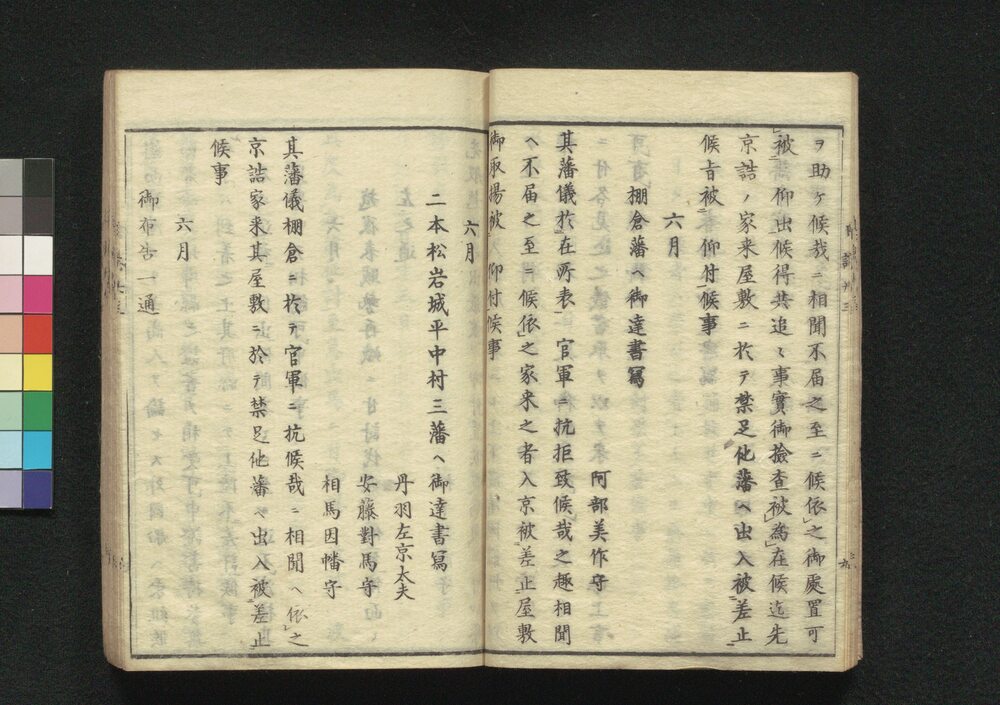 ヲ助ケ候哉ニ相聞不届之至ニ候依之御處置可
被 仰出候得共追々事實御撿査被為在候迄先
京詰ノ家来屋敷ニ於テ禁足他藩ヘ出入被差止
候㫖被 仰付候事
六月
棚倉藩ヘ御達書寫
阿部美作守
其藩儀於在所表 官軍ニ抗拒致候哉之趣相聞
ヘ不届之至ニ候依之家来之者入京被差止屋敷
御取揚被 仰付候事
六月
二本松岩城平中村三藩ヘ御達書寫
丹羽左京太夫
安藤對馬守
相馬因幡守
其藩儀棚倉ニ於テ官軍ニ抗候哉ニ相聞ヘ依之
京詰家来其屋敷ニ於テ禁足他藩ヘ出入被差止
候事
六月
御布告一通